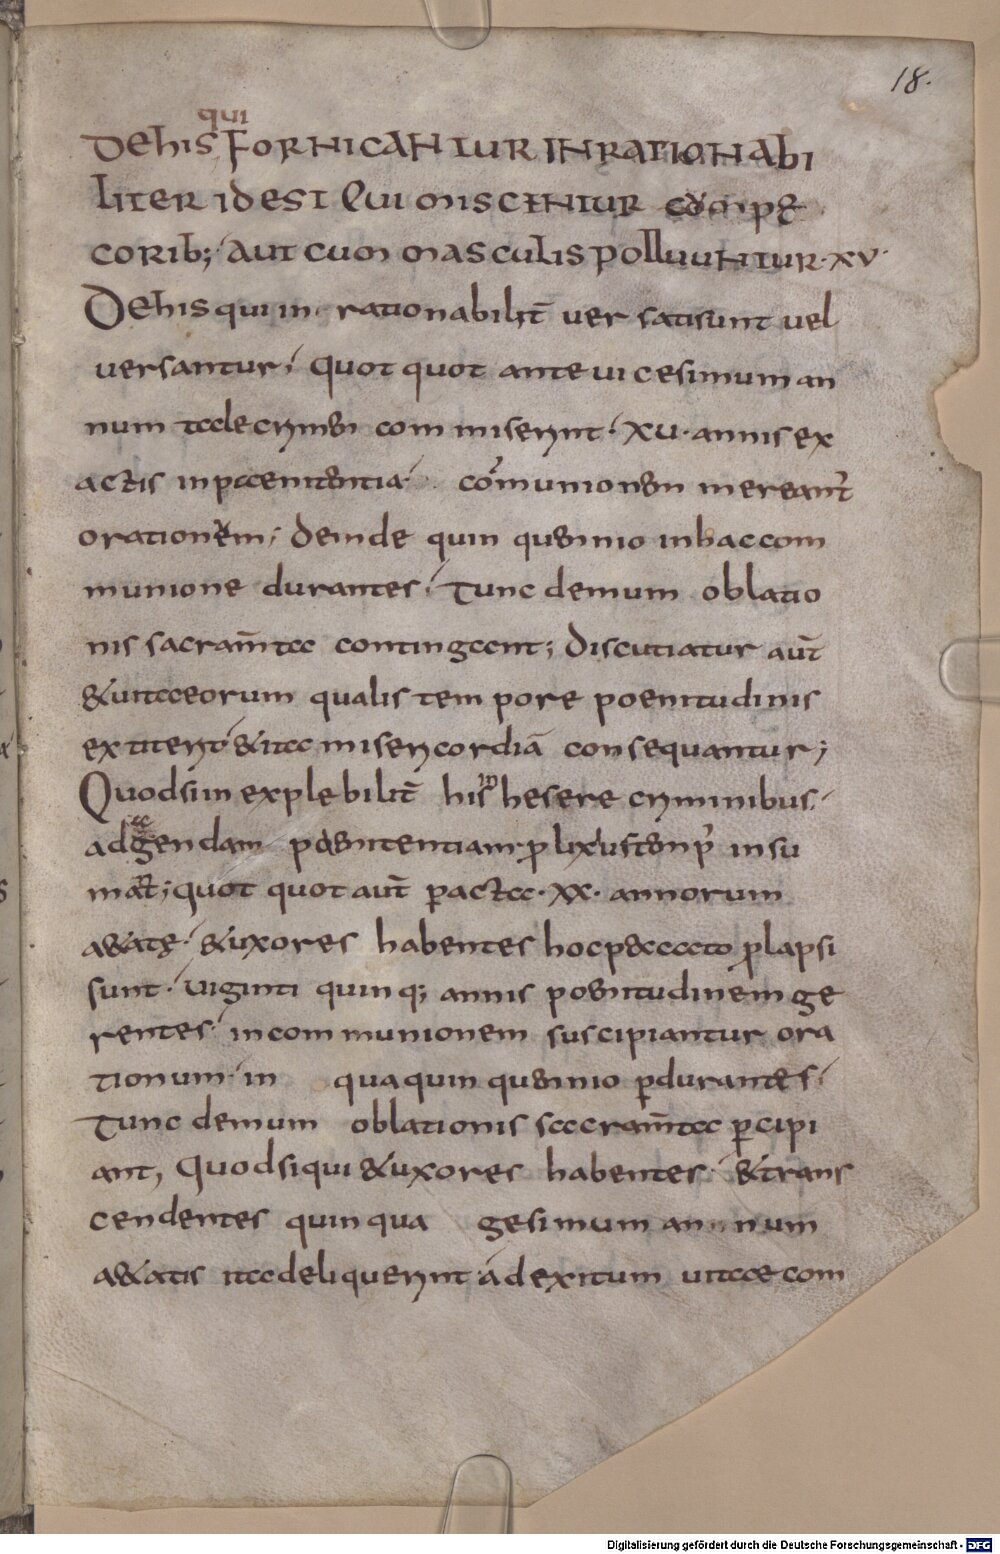 18.
qui
Dehis FORNICANTUR INRATIONABI
LITER idEST QUI MISCENTUR cum pę
CORIB; AUT CUM MASCULIS POLLUUNTUR·XV·
Dehis qui in rationabilit̄ uer satisunt uel
uersantur; Quot quot ante uicesimum an
num talecrimen com miserint· XU· annis ex
actis inpaenitentia com̄munionem mereant̄
orationem; deinde quin quennio inhaccom
munione durantes; Tunc demum oblatio
nis sacram̄ta contingant; Discutiatur aut̄
&uitaeorum qualis tempore poenitudinis
extiterit &ita misericordiā consequantur;
Quodsi in explebilit̄ his in hesere criminibus·
ad agendam poenitentiam prolixiustemp' insu
mat̄; quot quot aut̄ peractae·XX· annorum
a&atę· &uxores habentes hocp&ccato prolapsi
sunt· uiginti quinq; annis poenitudinem ge
rentes· incommunionem suscipiantur ora
tionum· in quaquin quennio perdurantes·
Tunc demum oblationis sacram̄ta percipi
ant, Quodsiqui &uxores habentes· &trans
cendentes quinqua gesimum annum
a&atis itadeliquerint· ad exitum uitae com
Digitalisierung gefördert durch die Deutsche Forschungsgemeinschaft - DFG